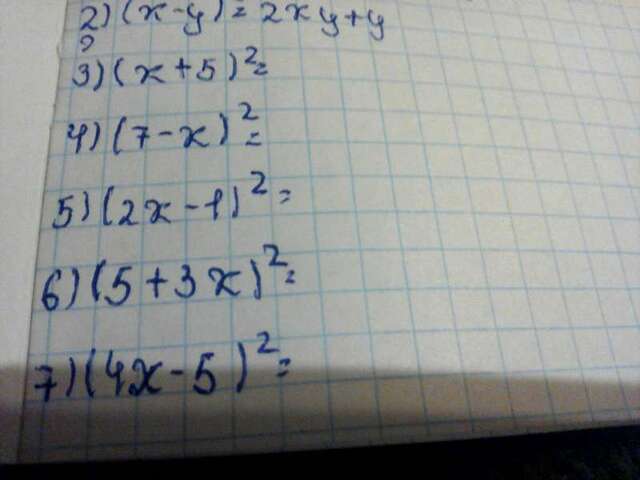 2) (x-y)=2xy+y
3) (x+5)²=
4) (7-x)²=
5) (2x-1)²=
6) (5+3x)²=
7) (4x-5)²=